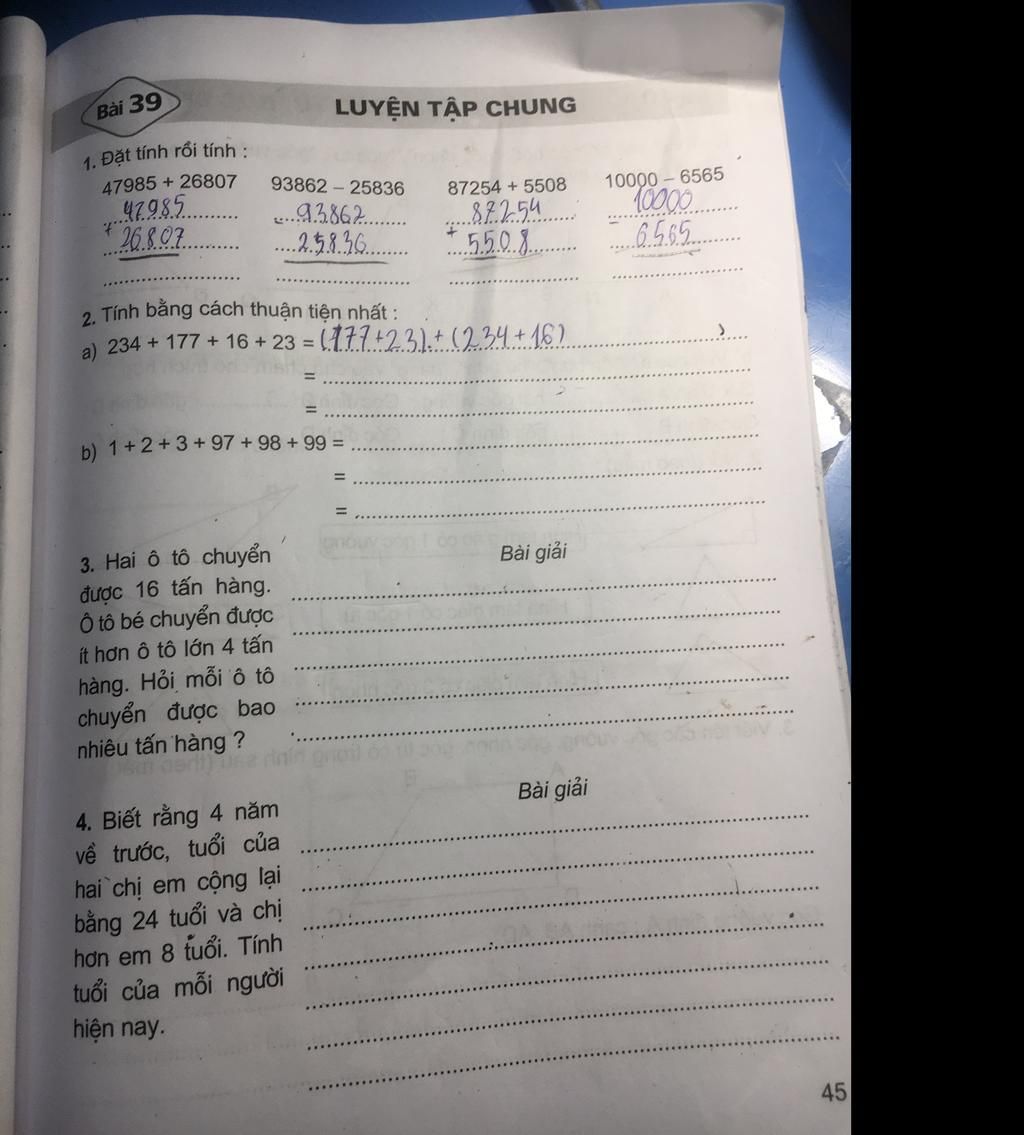 Bài 39
LUYỆN TẬP CHUNG
1. Đặt tính rồi tính :
47985 + 26807 93862 – 25836 87254 + 5508 10000 – 6565
47985 93862 87254 10000
+ – + –
26807 25836 5508 6565
2. Tính bằng cách thuận tiện nhất :
a) 234 + 177 + 16 + 23 = (177+23) + (234+16)
=
=
b) 1 + 2 + 3 + 97 + 98 + 99 =
=
=
3. Hai ô tô chuyển
được 16 tấn hàng.
Ô tô bé chuyển được
ít hơn ô tô lớn 4 tấn
hàng. Hỏi mỗi ô tô
chuyển được bao
nhiêu tấn hàng ?
Bài giải
4. Biết rằng 4 năm
về trước, tuổi của
hai chị em cộng lại
bằng 24 tuổi và chị
hơn em 8 tuổi. Tính
tuổi của mỗi người
hiện nay.
Bài giải
45